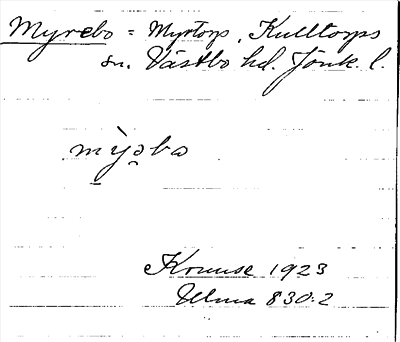 Myrebo = Myrtorp, Kulltorps
sn. Västbo hd. Jönk. l.
mỳəbo
1923
Ulma 830:2